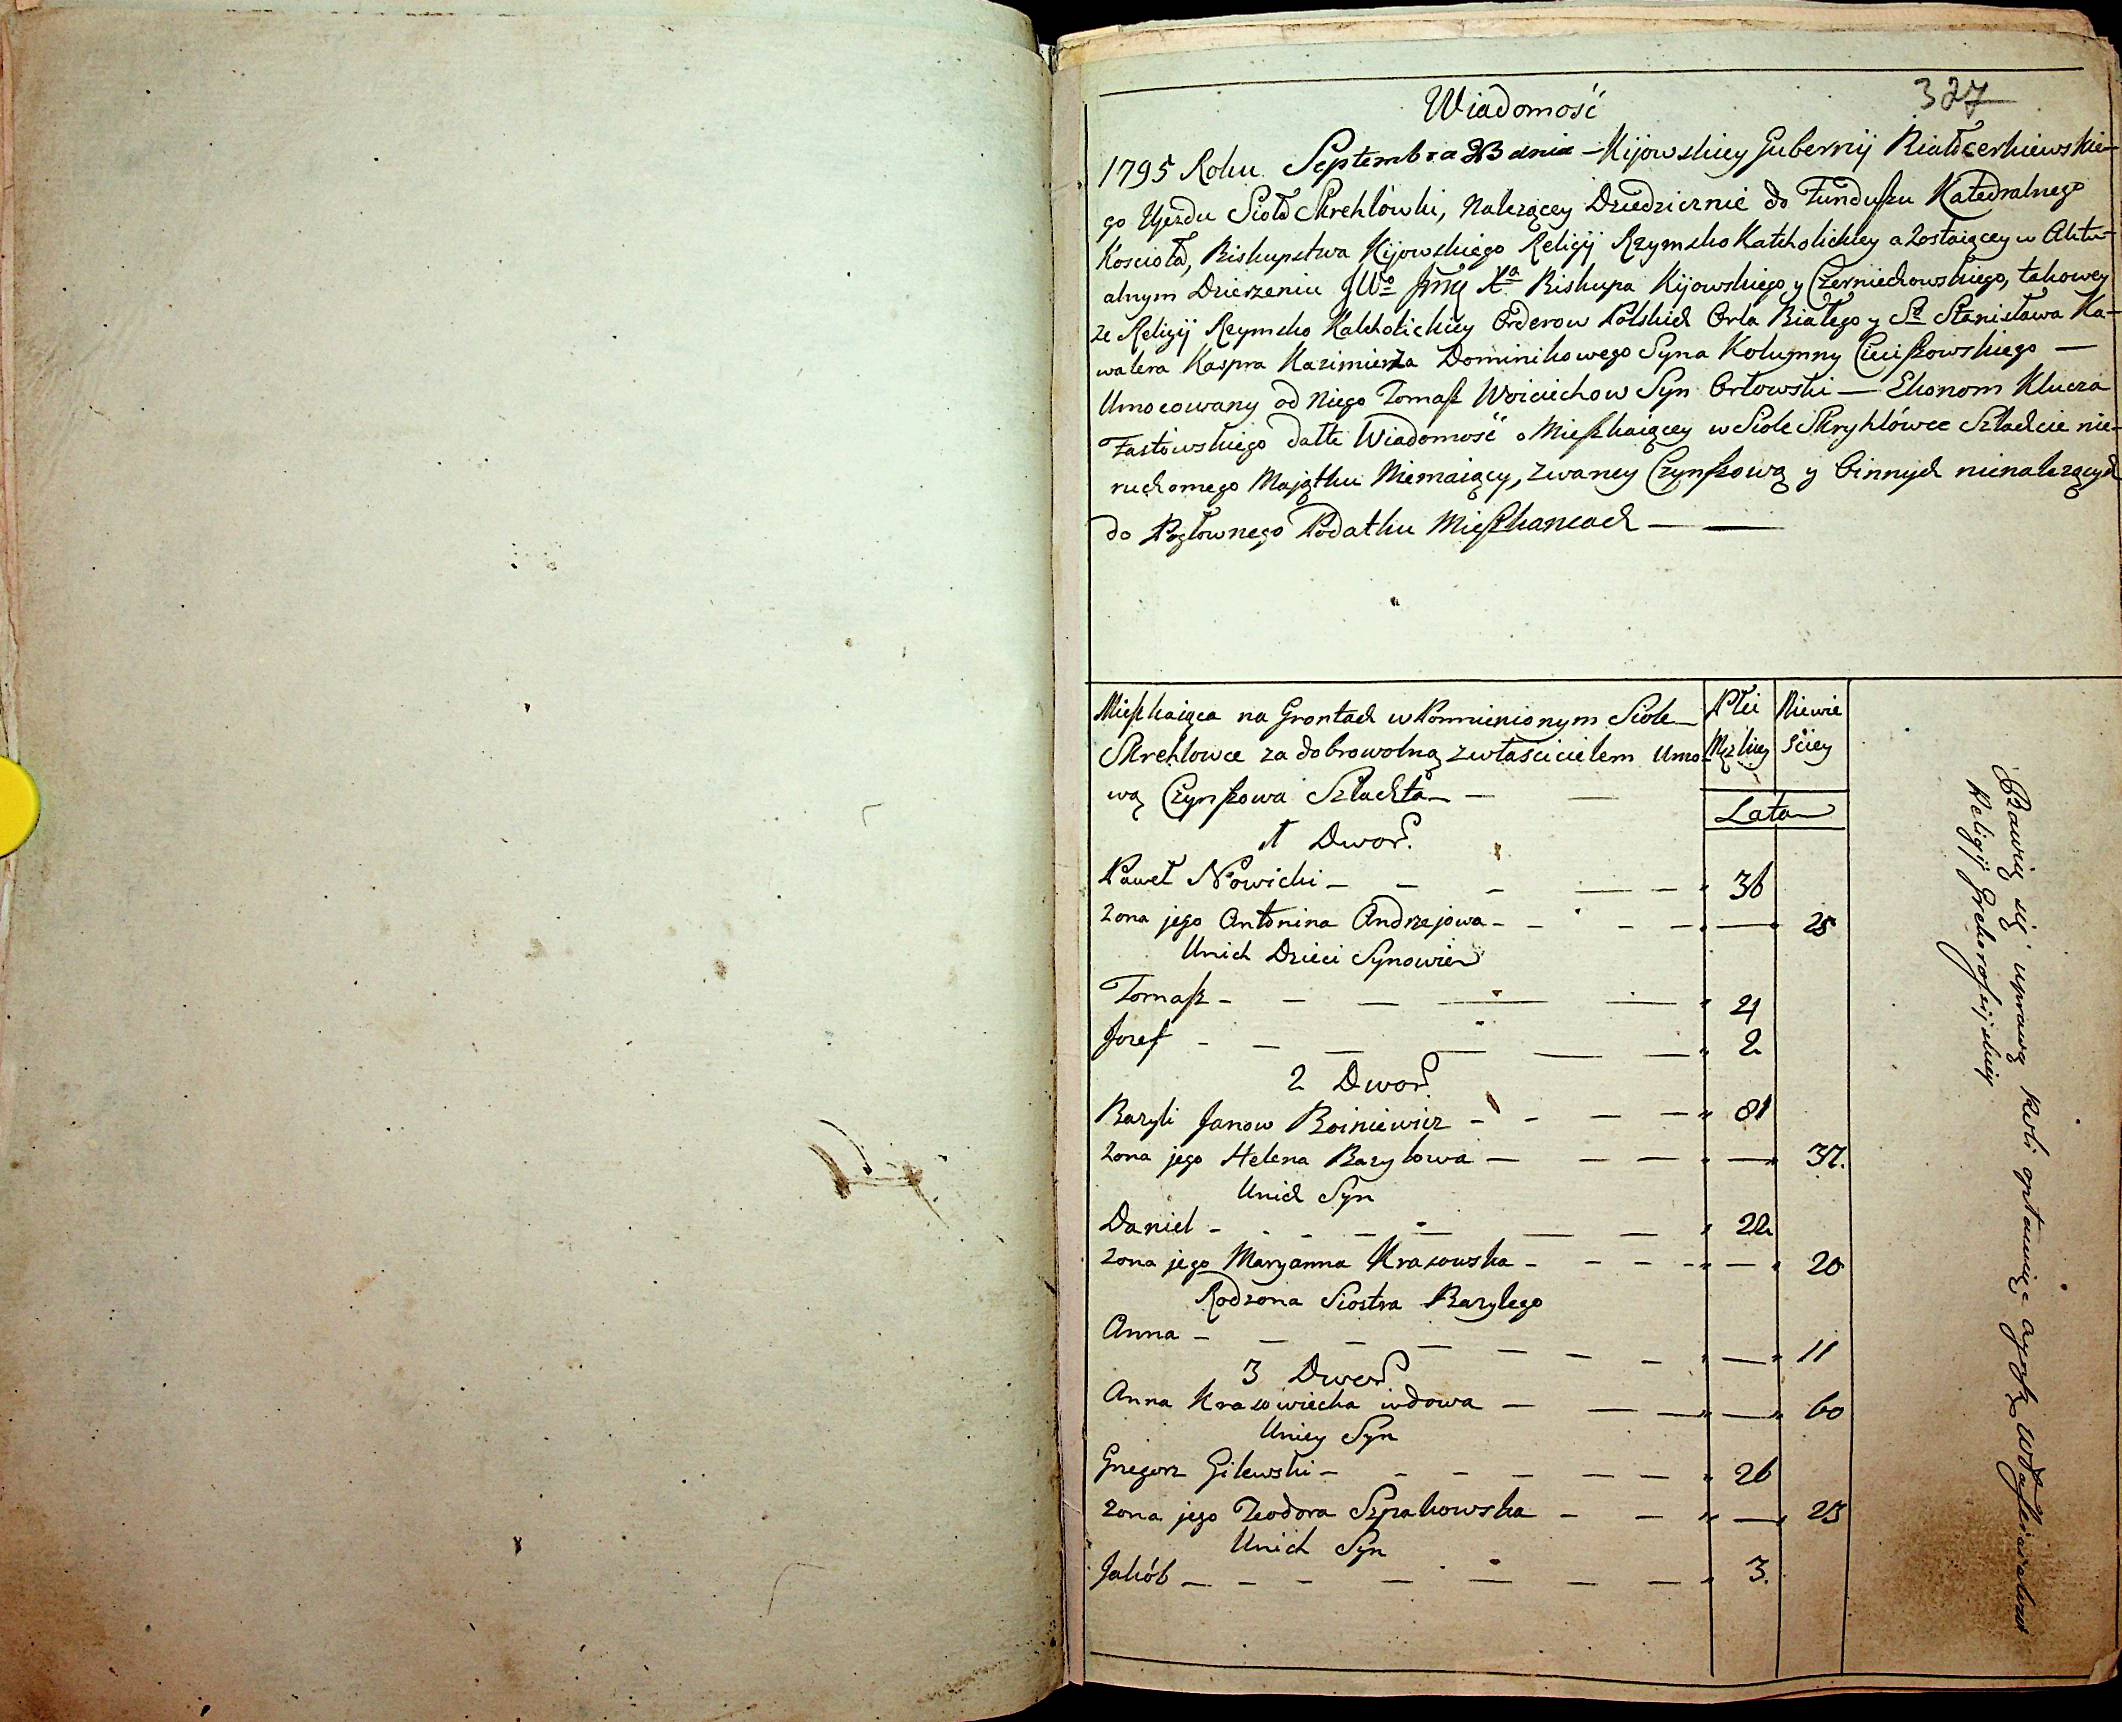 327
Wiadomość
1795 Roku Septembra 23 dnia – Kijowskiey Gubernij Białcerkiewskie-
go Ujezdu Sioła Skrehlówki, Należącey Dziedzicznie do Funduszu Katedralnego
Koscioła, Biskupstwa Kijowskiego Religij Rzymsko Katholickiey a Zostaiącey w Aktu-
alnym Dzierzeniu JWo Jmę Xa Biskupa Kijowskiego y Czerniechowskiego, takowey
że Religij Rzymsko Katholickiey Orderow Polskich Orła Białego y So Stanisława Ka-
walera Kaspra Kazimierza Dominikowego Syna Kolumny Cieciszowskiego —
Umocowany od Niego Tomasz Woiciechow Syn Orłowski — Ekonom Klucza
Fastowskiego dałe Wiadomość o Mieszkaiącey w Siole Skryhlówce Szlachcie nie-
ruchomego Maiątku Niemaiący, zwaney Czynszową y Innych nienalezących
do Pogłownego Podatku Mieszkancach — —
Mieszkaiąca na Grontach w Pomienionym Siole
Skrehlowce za dobrowolną z właścicielem Umo-
wą Czynszowa Szlachta — —
Płci Męzkiey
Niewie ściey
Lata
1 Dwor
Paweł Nowicki — 36
Zona jego Antonina Andrzejowa — 25
Unich Dzieci Synowie
Tomasz — 4
Jozef — 2
2 Dwor
Bazyli Janow Boiniewicz — 81
Zona jego Helena Bazylowa — 37.
Unich Syn
Daniel — 22
Zona jego Maryanna Krasowska — 20
Rodzona Siostra Bazylego
Anna — 11
3 Dwor
Anna Krasowiecka wdowa — 60
Uniey Syn
Grzegorz Gilewski — 26
Zona jego Teodora Szpakowska — 23
Unich Syn
Jakób — 3.
Bawią się uprawą Roli opłacaiąc czynsz
Religij Grekorossijskiey